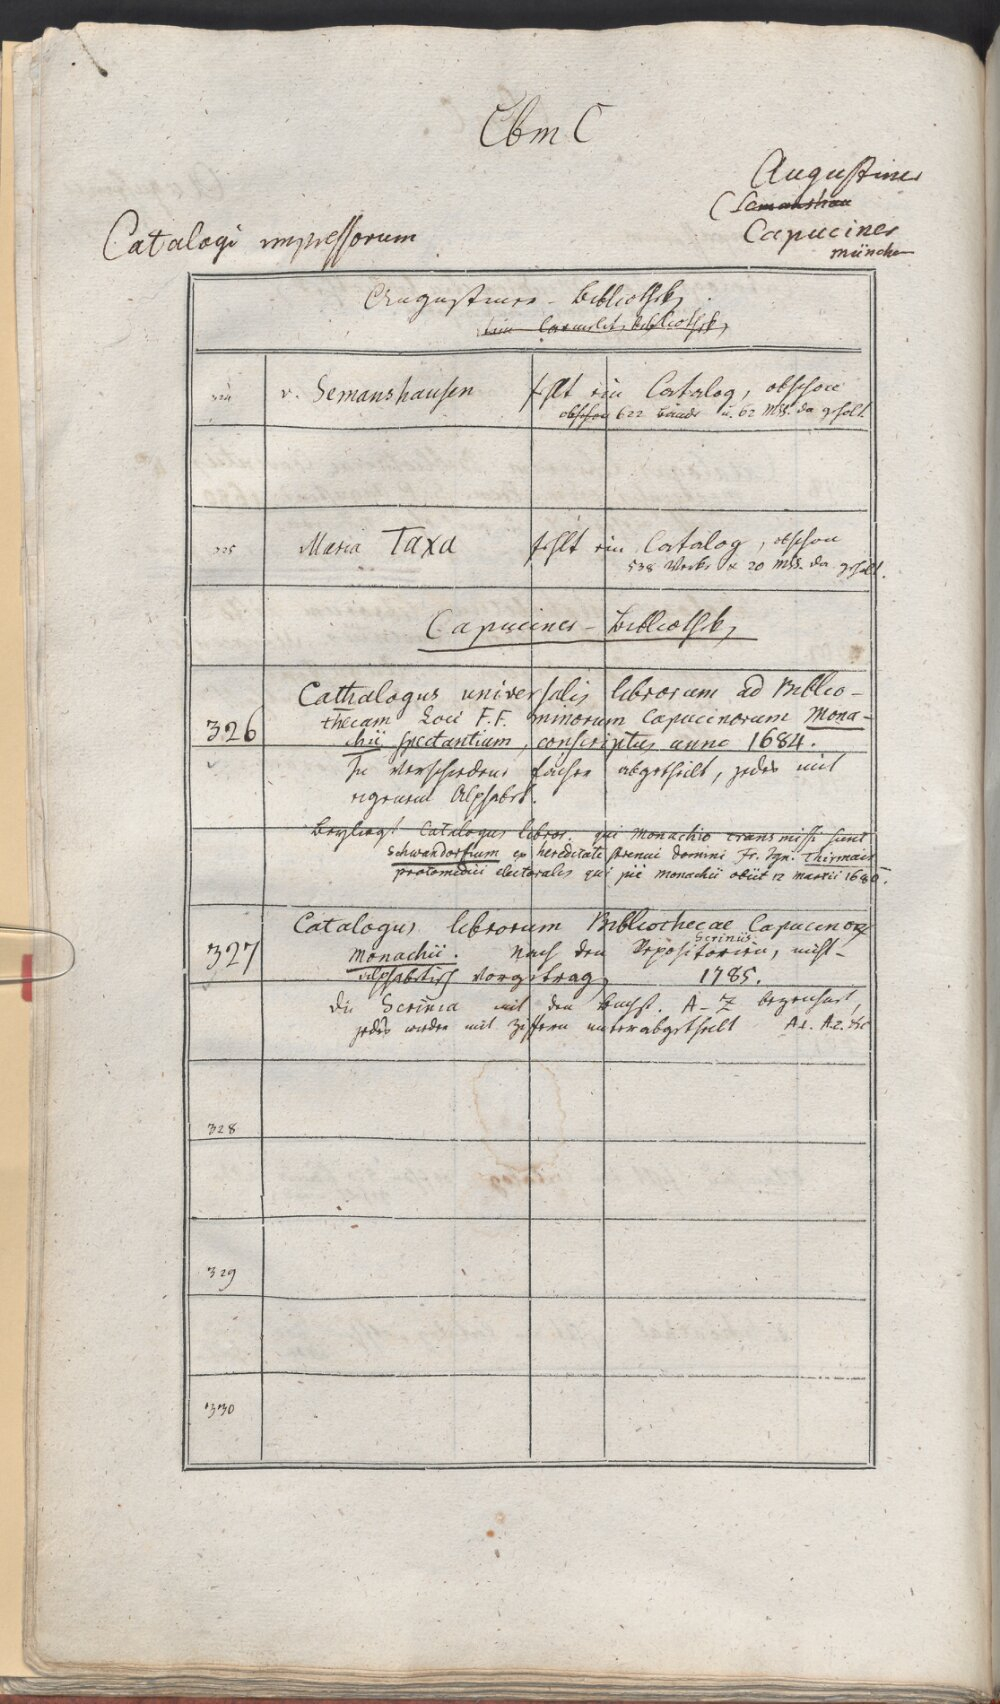 Cbm C
Augustiner
Catalogi impressorum
Capuciner
München
Augustiner-Bibliothek
324 v. Semanshausen fehlt ein Catalog, obschon
obschon 622 Bände u. 62 Mss. da gehölt
325 Maria Taxa fehlt ein Catalog, obschon
538 Werke & 20 Mss. da gehölt.
Capuciner-Bibliothek
326 Cathalogus universalis librorum ad Biblio-
thecam Loci F.F. minorum Capucinorum Mona-
chii spectantium, conscriptus anno 1684.
In verschiedene Fächer abgetheilt, jedes mit
eigenem Alphabet.
Beyliegt Catalogus libror. qui Monachio transmissi sunt
Schwandorfium ex hereditate strenui Domini Fr. Ign. Thirmair
protomedici electoralis qui pie Monachii obiit 12 Martii 1680.
327 Catalogus librorum Bibliothecae Capucinor
Scriniis
Monachii. Nach den Repositorien, nicht-
alphabetisch vorgetrag, 1785.
Die Scrinia mit den Buchst. A-Z bezeichnet,
jedes wieder mit Ziffern unterabgetheilt A1. A2. etc
328
329
330